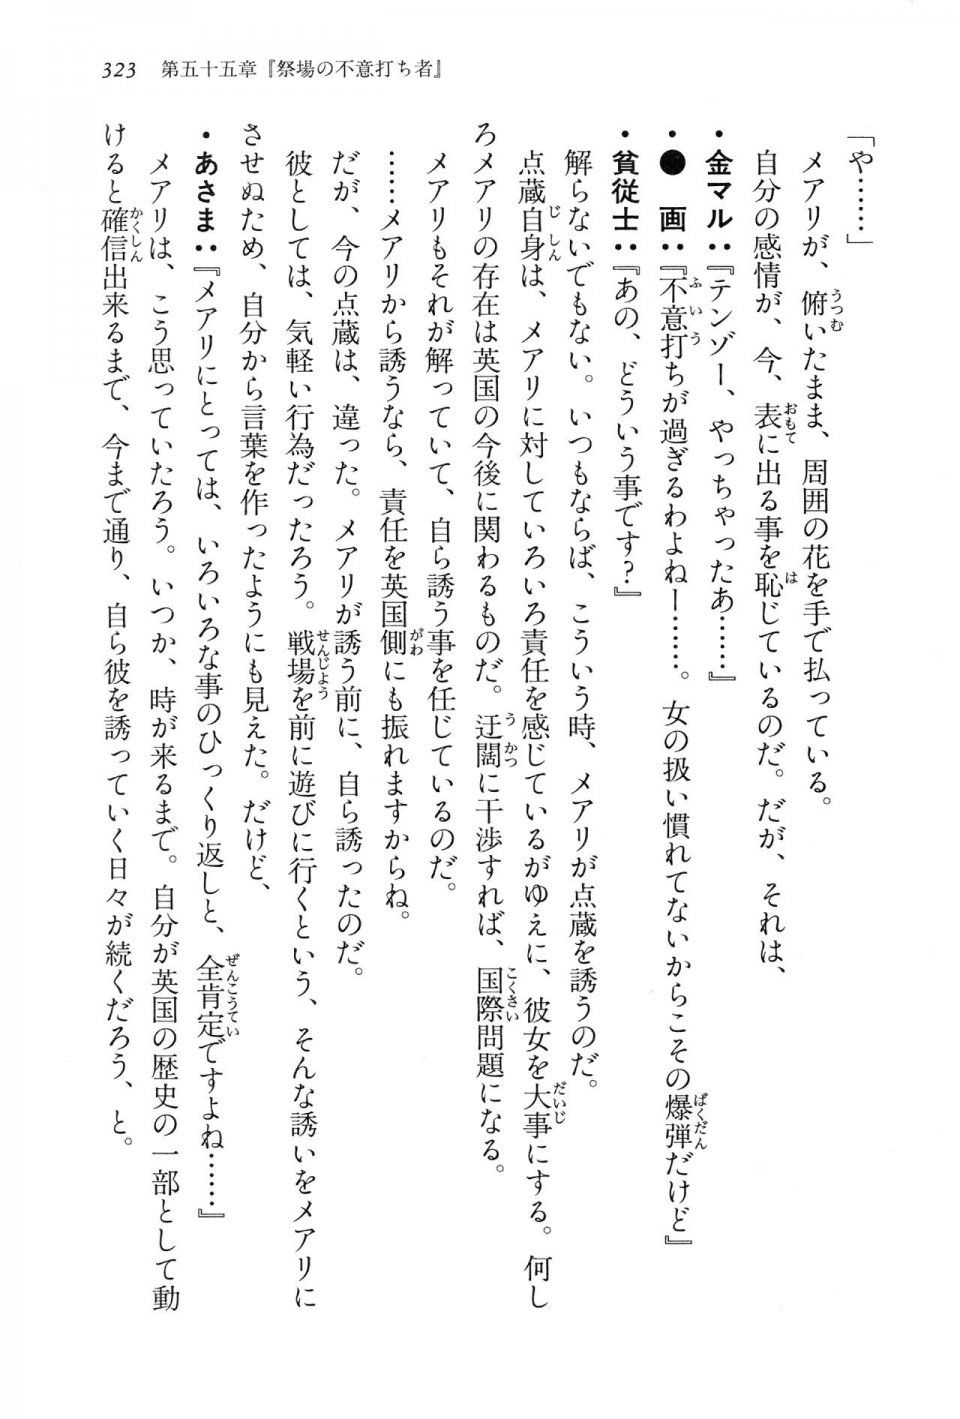 323　第五十五章『祭場の不意打ち者』
「や……」
　メアリが、俯いたまま、周囲の花を手で払っている。
　自分の感情が、今、表に出る事を恥じているのだ。だが、それは、
・金マル：『テンゾー、やっちゃったあ……』
・●　画：『不意打ちが過ぎるわよねー……。女の扱い慣れてないからこその爆弾だけど』
・貧従士：『あの、どういう事です？』
　解らないでもない。いつもならば、こういう時、メアリが点蔵を誘うのだ。
　点蔵自身は、メアリに対していろいろ責任を感じているがゆえに、彼女を大事にする。何し
ろメアリの存在は英国の今後に関わるものだ。迂闊に干渉すれば、国際問題になる。
　メアリもそれが解っていて、自ら誘う事を任じているのだ。
　……メアリから誘うなら、責任を英国側にも振れますからね。
　だが、今の点蔵は、違った。メアリが誘う前に、自ら誘ったのだ。
　彼としては、気軽い行為だったろう。戦場を前に遊びに行くという、そんな誘いをメアリに
させぬため、自分から言葉を作ったようにも見えた。だけど、
・あさま：『メアリにとっては、いろいろな事のひっくり返しと、全肯定ですよね……』
　メアリは、こう思っていたろう。いつか、時が来るまで。自分が英国の歴史の一部として動
けると確信出来るまで、今まで通り、自ら彼を誘っていく日々が続くだろう、と。